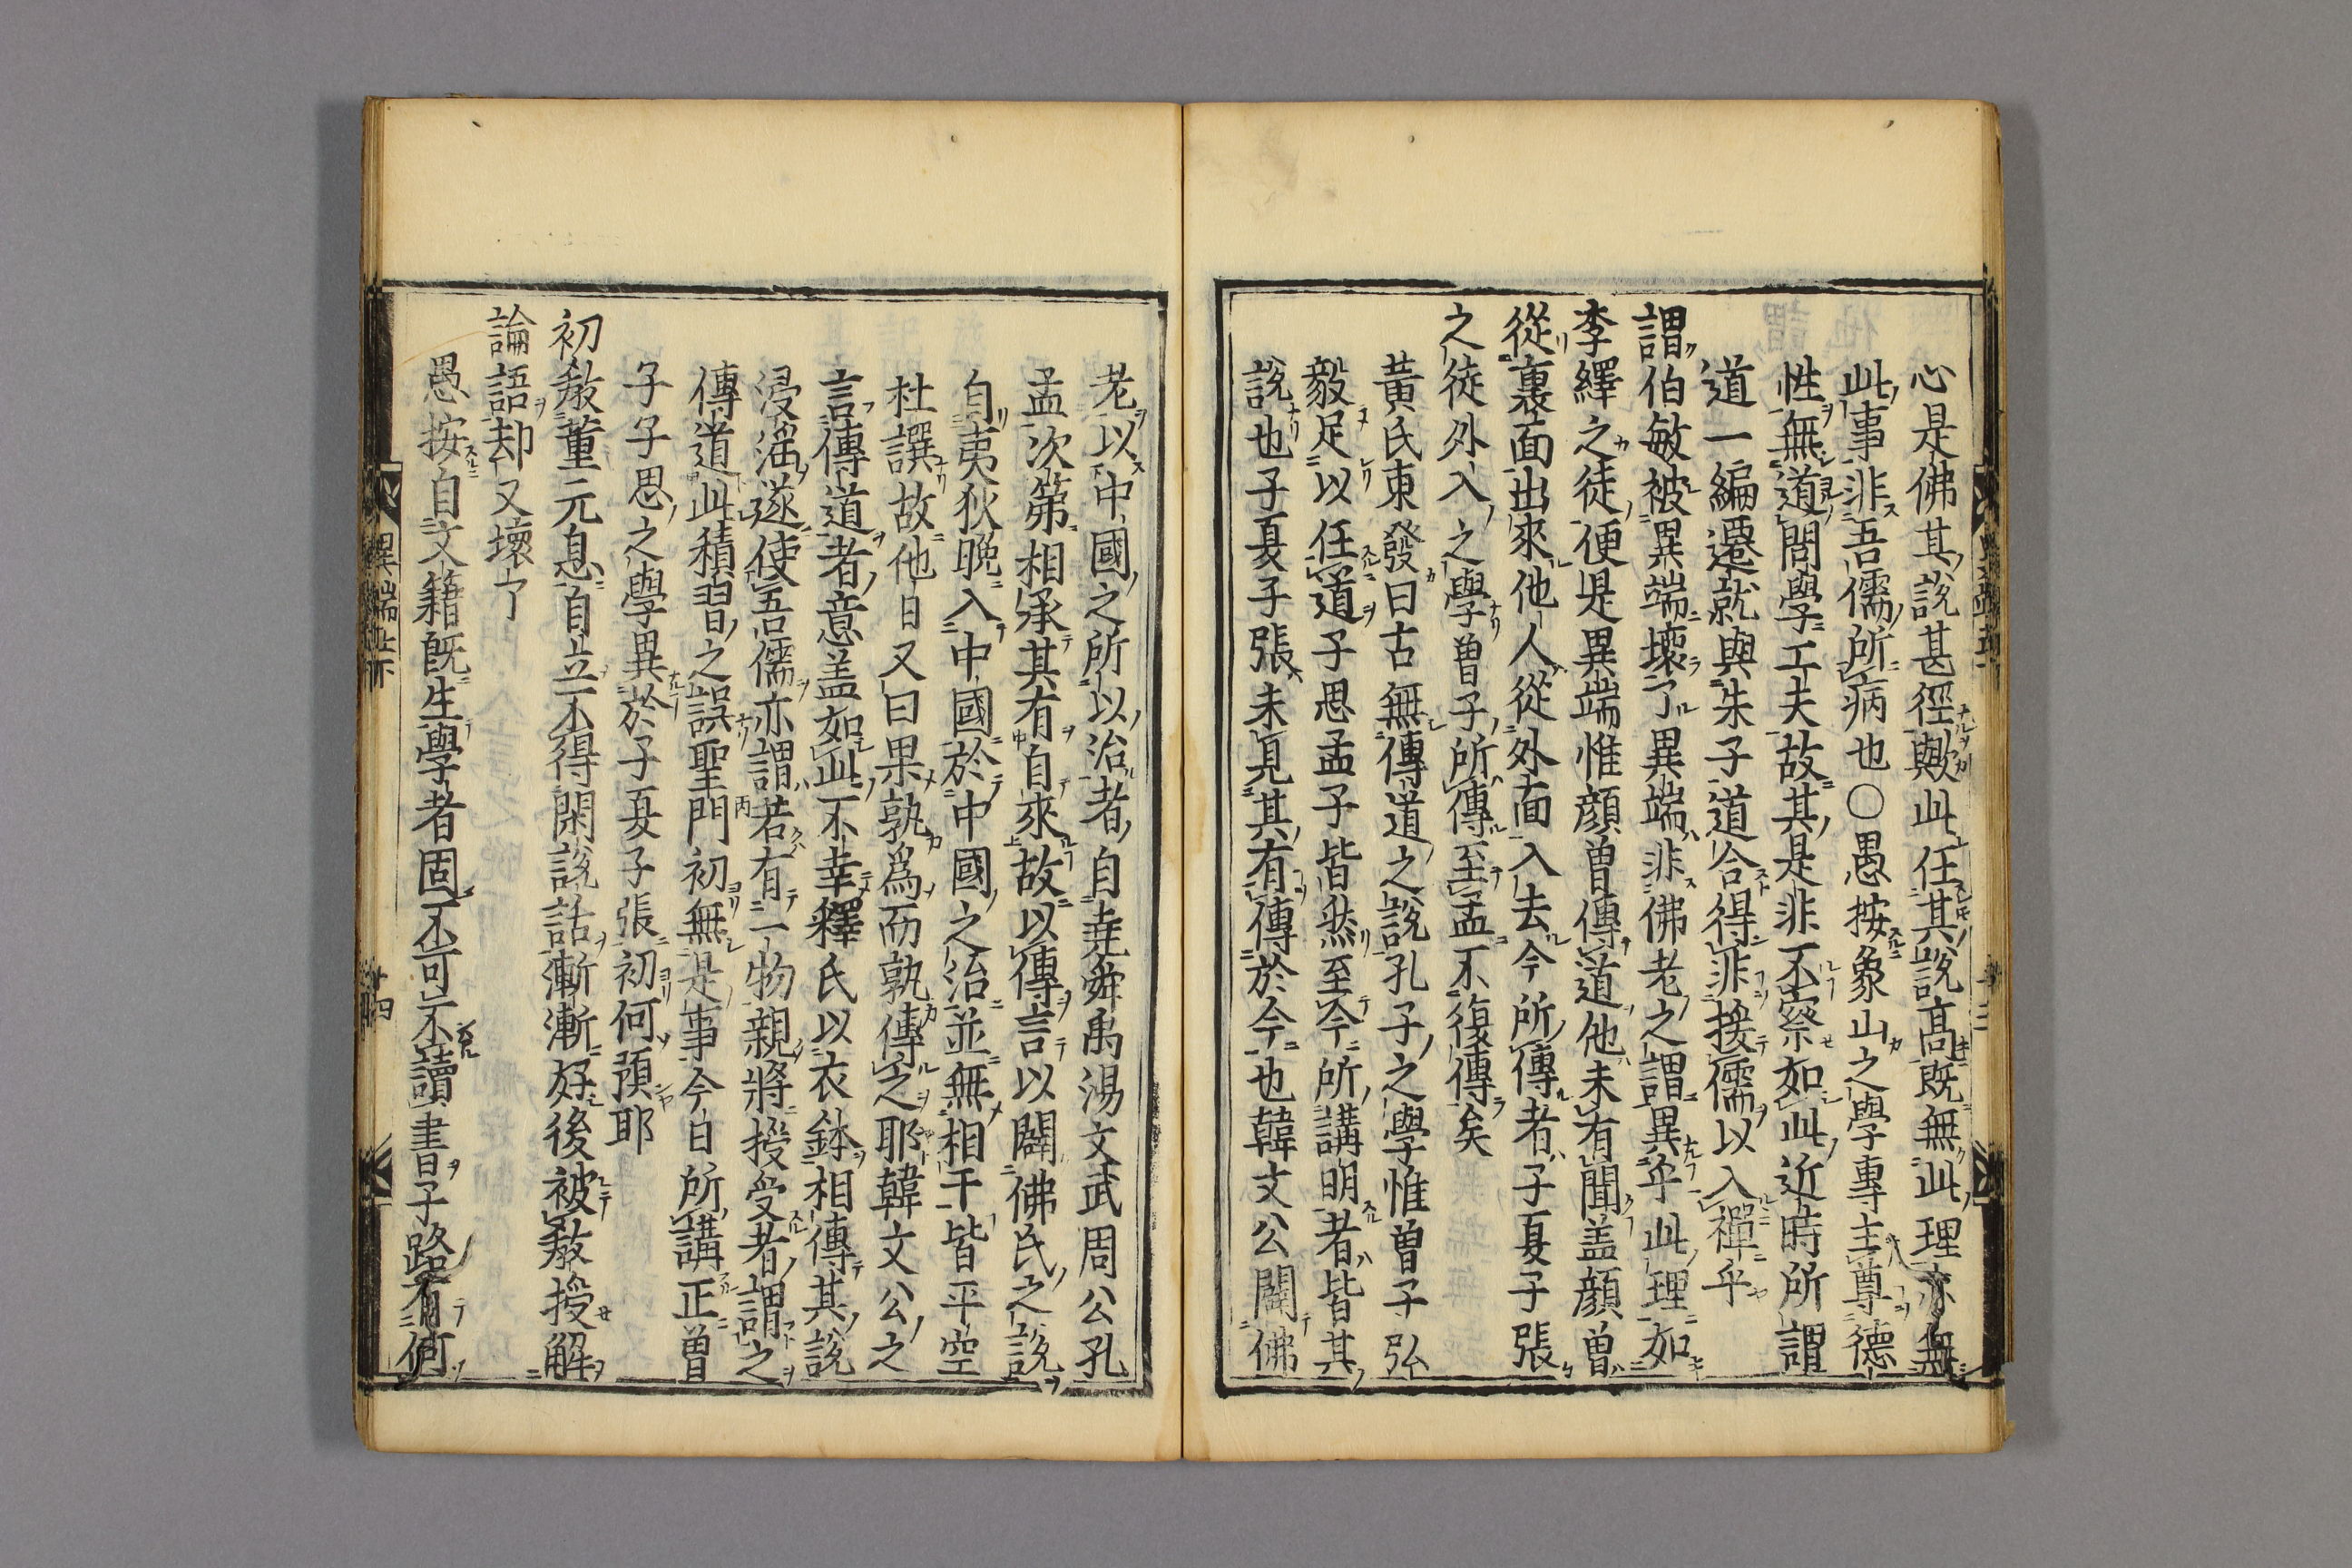 心是佛其說甚徑歟此任其說髙既無此理亦無
此事非吾儒所病也○愚按象山之學專主尊德
性無道問學工夫故其是非不察如此近時所謂
道一編遷就與朱子道合得非援儒以入禪乎
謂伯敏被異端壞了異端非佛老之謂異乎此理如
李繹之徒便是異端惟顔曽傳道他未有聞盖顔曽
從裏面出來他人從外面入去今所傳者子夏子張
之徒外入之學曽子所傳至孟不復傳矣
黃氏東發曰古無傳道之說孔子之學惟曽子弘
毅足以任道子思孟子皆然至今所講明者皆其
說也子夏子張未見其有傳於今也韓文公闢佛
老以中國之所以治者自堯舜禹湯文武周公孔
孟次第相承其有自來故以傳言以闢佛氏之說
自夷狄晚入中國於中國之治並無相干皆平空
杜譔故他日又曰果孰爲而孰傳之耶韓文公之
言傳道者意盖如此不幸釋氏以衣鉢相傳其說
浸淫遂使吾儒亦謂若有一物親將授受者謂之
傳道此積習之誤聖門初無是事今日所講正曽
子子思之學異於子夏子張初何預耶
初敎董元息自立不得閑說話漸漸好後被敎授解
論語却又壞了
愚按自文籍既生學者固不可不讀書子路有何
異端上下
十四